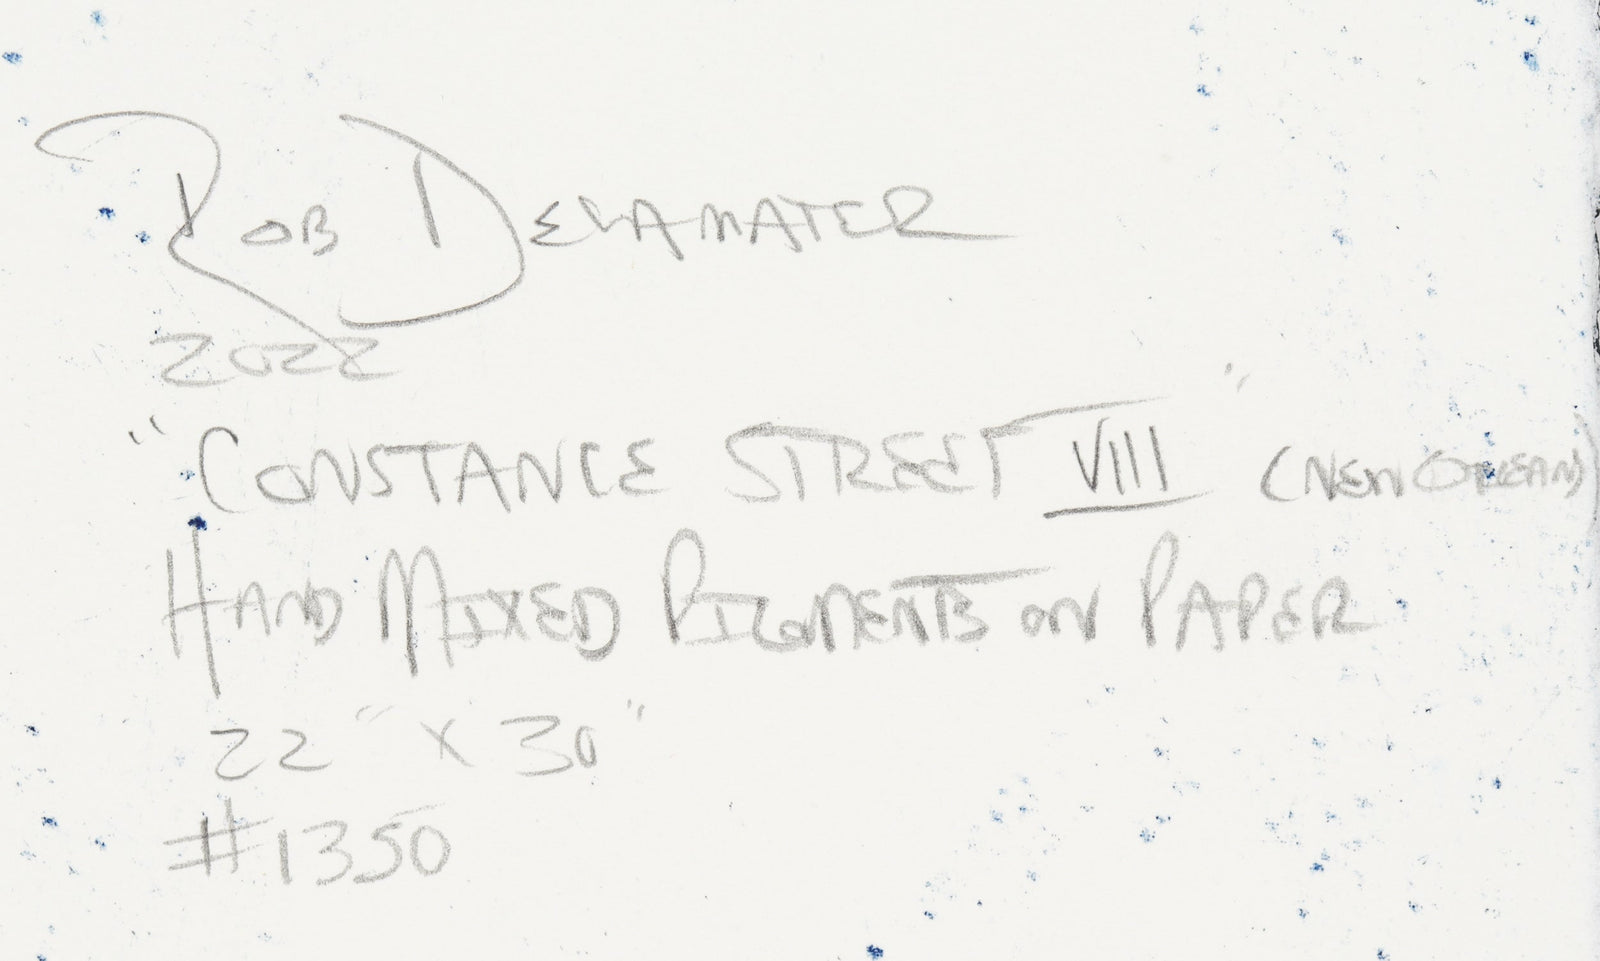 ROB DELAMATER
2022
"CONSTANCE STREET VIII" (NEW ORLEANS)
HAND MIXED PIGMENTS ON PAPER
22" X 30"
#1350